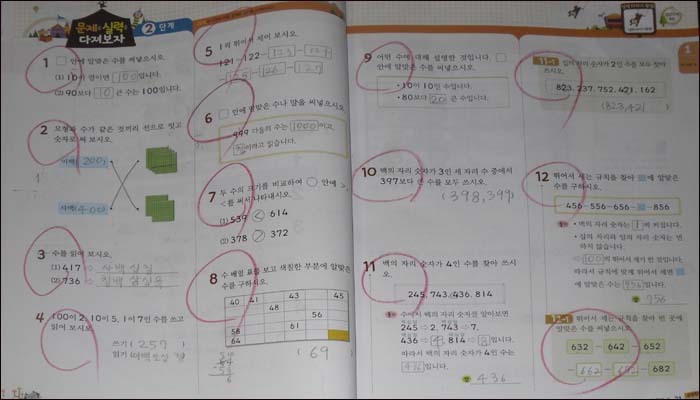 문제는 실력을
다져보자
2 단계
1 □ 안에 알맞은 수를 써넣으시오.
(1) 10이 열이면 100 입니다.
(2) 90보다 10 큰 수는 100입니다.
2 모형과 수가 같은 것끼리 선으로 잇고
숫자로 써 보시오.
이백 200
사백 400
3 수를 읽어 보시오.
(1) 417 ⇨ 사백 십칠
(2) 736 ⇨ 칠백 삼십육
4 100이 2, 10이 5, 1이 7인 수를 쓰고
읽어 보시오.
쓰기 ( 257 )
읽기 (이백 오십 칠
5 1씩 뛰어서 세어 보시오.
121 - 122 - 123 - 124
- 125 - 126 - 127
6 □ 안에 알맞은 수나 말을 써넣으시오.
999 다음의 수는 1000 이고
이라고 읽습니다.
7 두 수의 크기를 비교하여 ○ 안에 >,
<를 써서 나타내시오.
(1) 539 < 614
(2) 378 > 372
8 수 배열표를 보고 색칠한 부분에 알맞은
수를 구하시오.
40 41 43 45
48
56
58 61
64
( 69
9 어떤 수에 대해 설명한 것입니다. □
안에 알맞은 수를 써넣으시오.
• 10이 10인 수입니다.
• 80보다 20 큰 수입니다.
10 백의 자리 숫자가 3인 세 자리 수 중에서
397보다 큰 수를 모두 쓰시오.
(398, 399)
11 백의 자리 숫자가 4인 수를 찾아 쓰시
오.
245, 743, 436, 814
수에서 백의 자리 숫자를 알아보면
245 ⇨ 2, 743 ⇨ 7,
436 ⇨ 4, 814 ⇨ 8 입니다.
따라서 백의 자리 숫자가 4인 수는
436 입니다.
답 436
11-1 십의 자리 숫자가 2인 수를 모두 찾아
쓰시오.
823, 237, 752, 421, 162
(823, 421 )
12 뛰어서 세는 규칙을 찾아 에 알맞은
수를 구하시오.
456 - 556 - 656 - - 856
• 백의 자리 숫자는 1 씩 커집니다.
• 십의 자리와 일의 자리 숫자는 변
하지 않습니다.
⇨ 100 씩 뛰어서 세기 한 것입니다.
따라서 규칙에 맞게 뛰어서 세면
에 알맞은 수는 756 입니다.
답 756
12-1 뛰어서 세는 규칙을 찾아 빈 곳에
알맞은 수를 써넣으시오.
632 - 642 - 652
- 662 - 672 - 682